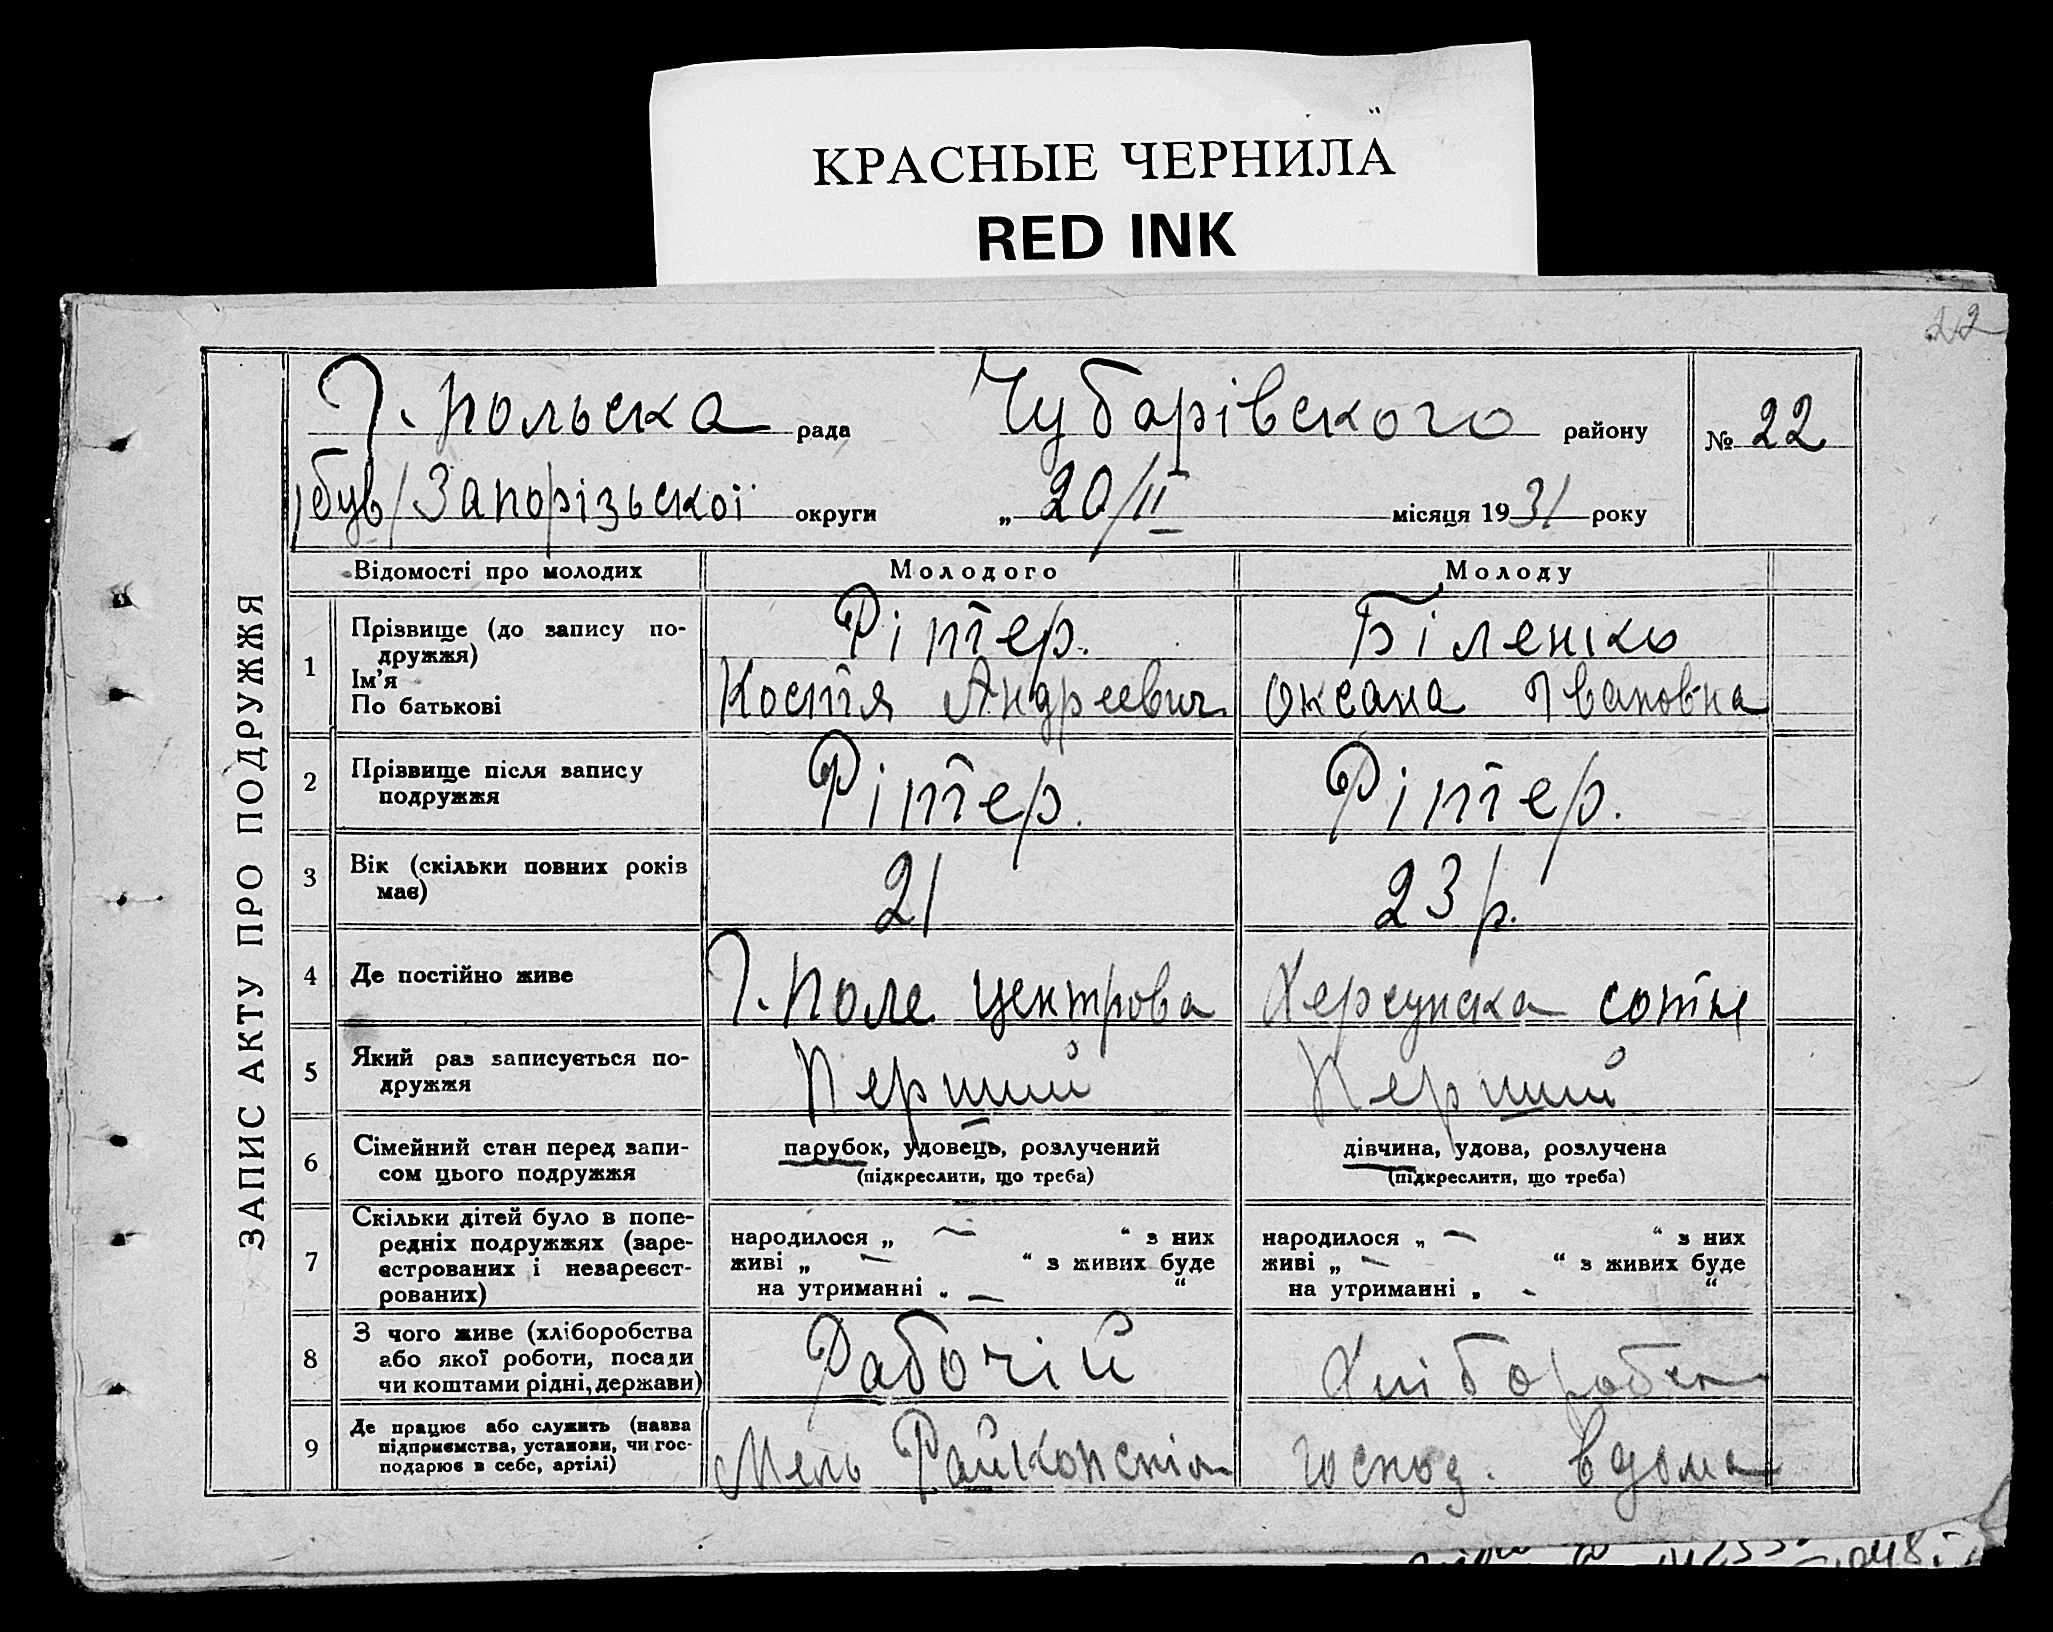 КРАСНЫЕ ЧЕРНИЛА
RED INK
22
ЗАПИС АКТУ ПРО ПОДРУЖЖЯ
Г. польска рада Чубарівського району № 22
/був/ Запорізьскої округи „ 20/II місяця 1931 року
Відомості про молодих Молодого Молоду
1 Прізвище (до запису по-
дружжя)
Ім'я
По батькові
Рітер. Біленко
Костя Андреевич Оксана Івановна
2 Прізвище після запису
подружжя
Рітер. Рітер.
3 Вік (скільки повних років
має)
21 23 р.
4 Де постійно живе Г. Поле центрова Херсунска сотня
5 Який раз записується по-
дружжя
Перший Перший
6 Сімейний стан перед запи-
сом цього подружжя
парубок, удовець, розлучений
(підкреслити, що треба)
дівчина, удова, розлучена
(підкреслити, що треба)
7 Скільки дітей було в попе-
редніх подружжях (заре-
єстрованих і незареєст-
рованих)
народилося „ — “ з них
живі „ — “ з живих буде
на утриманні „ — “
народилося „ — “ з них
живі „ — “ з живих буде
на утриманні „ - “
8 З чого живе (хліборобства
або якої роботи, посади
чи коштами рідні, держави)
Рабочій Хлібороб
9 Де працює або служить (назва
підприємства, установи, чи гос-
подарює в себе, артілі)
господ. вдома